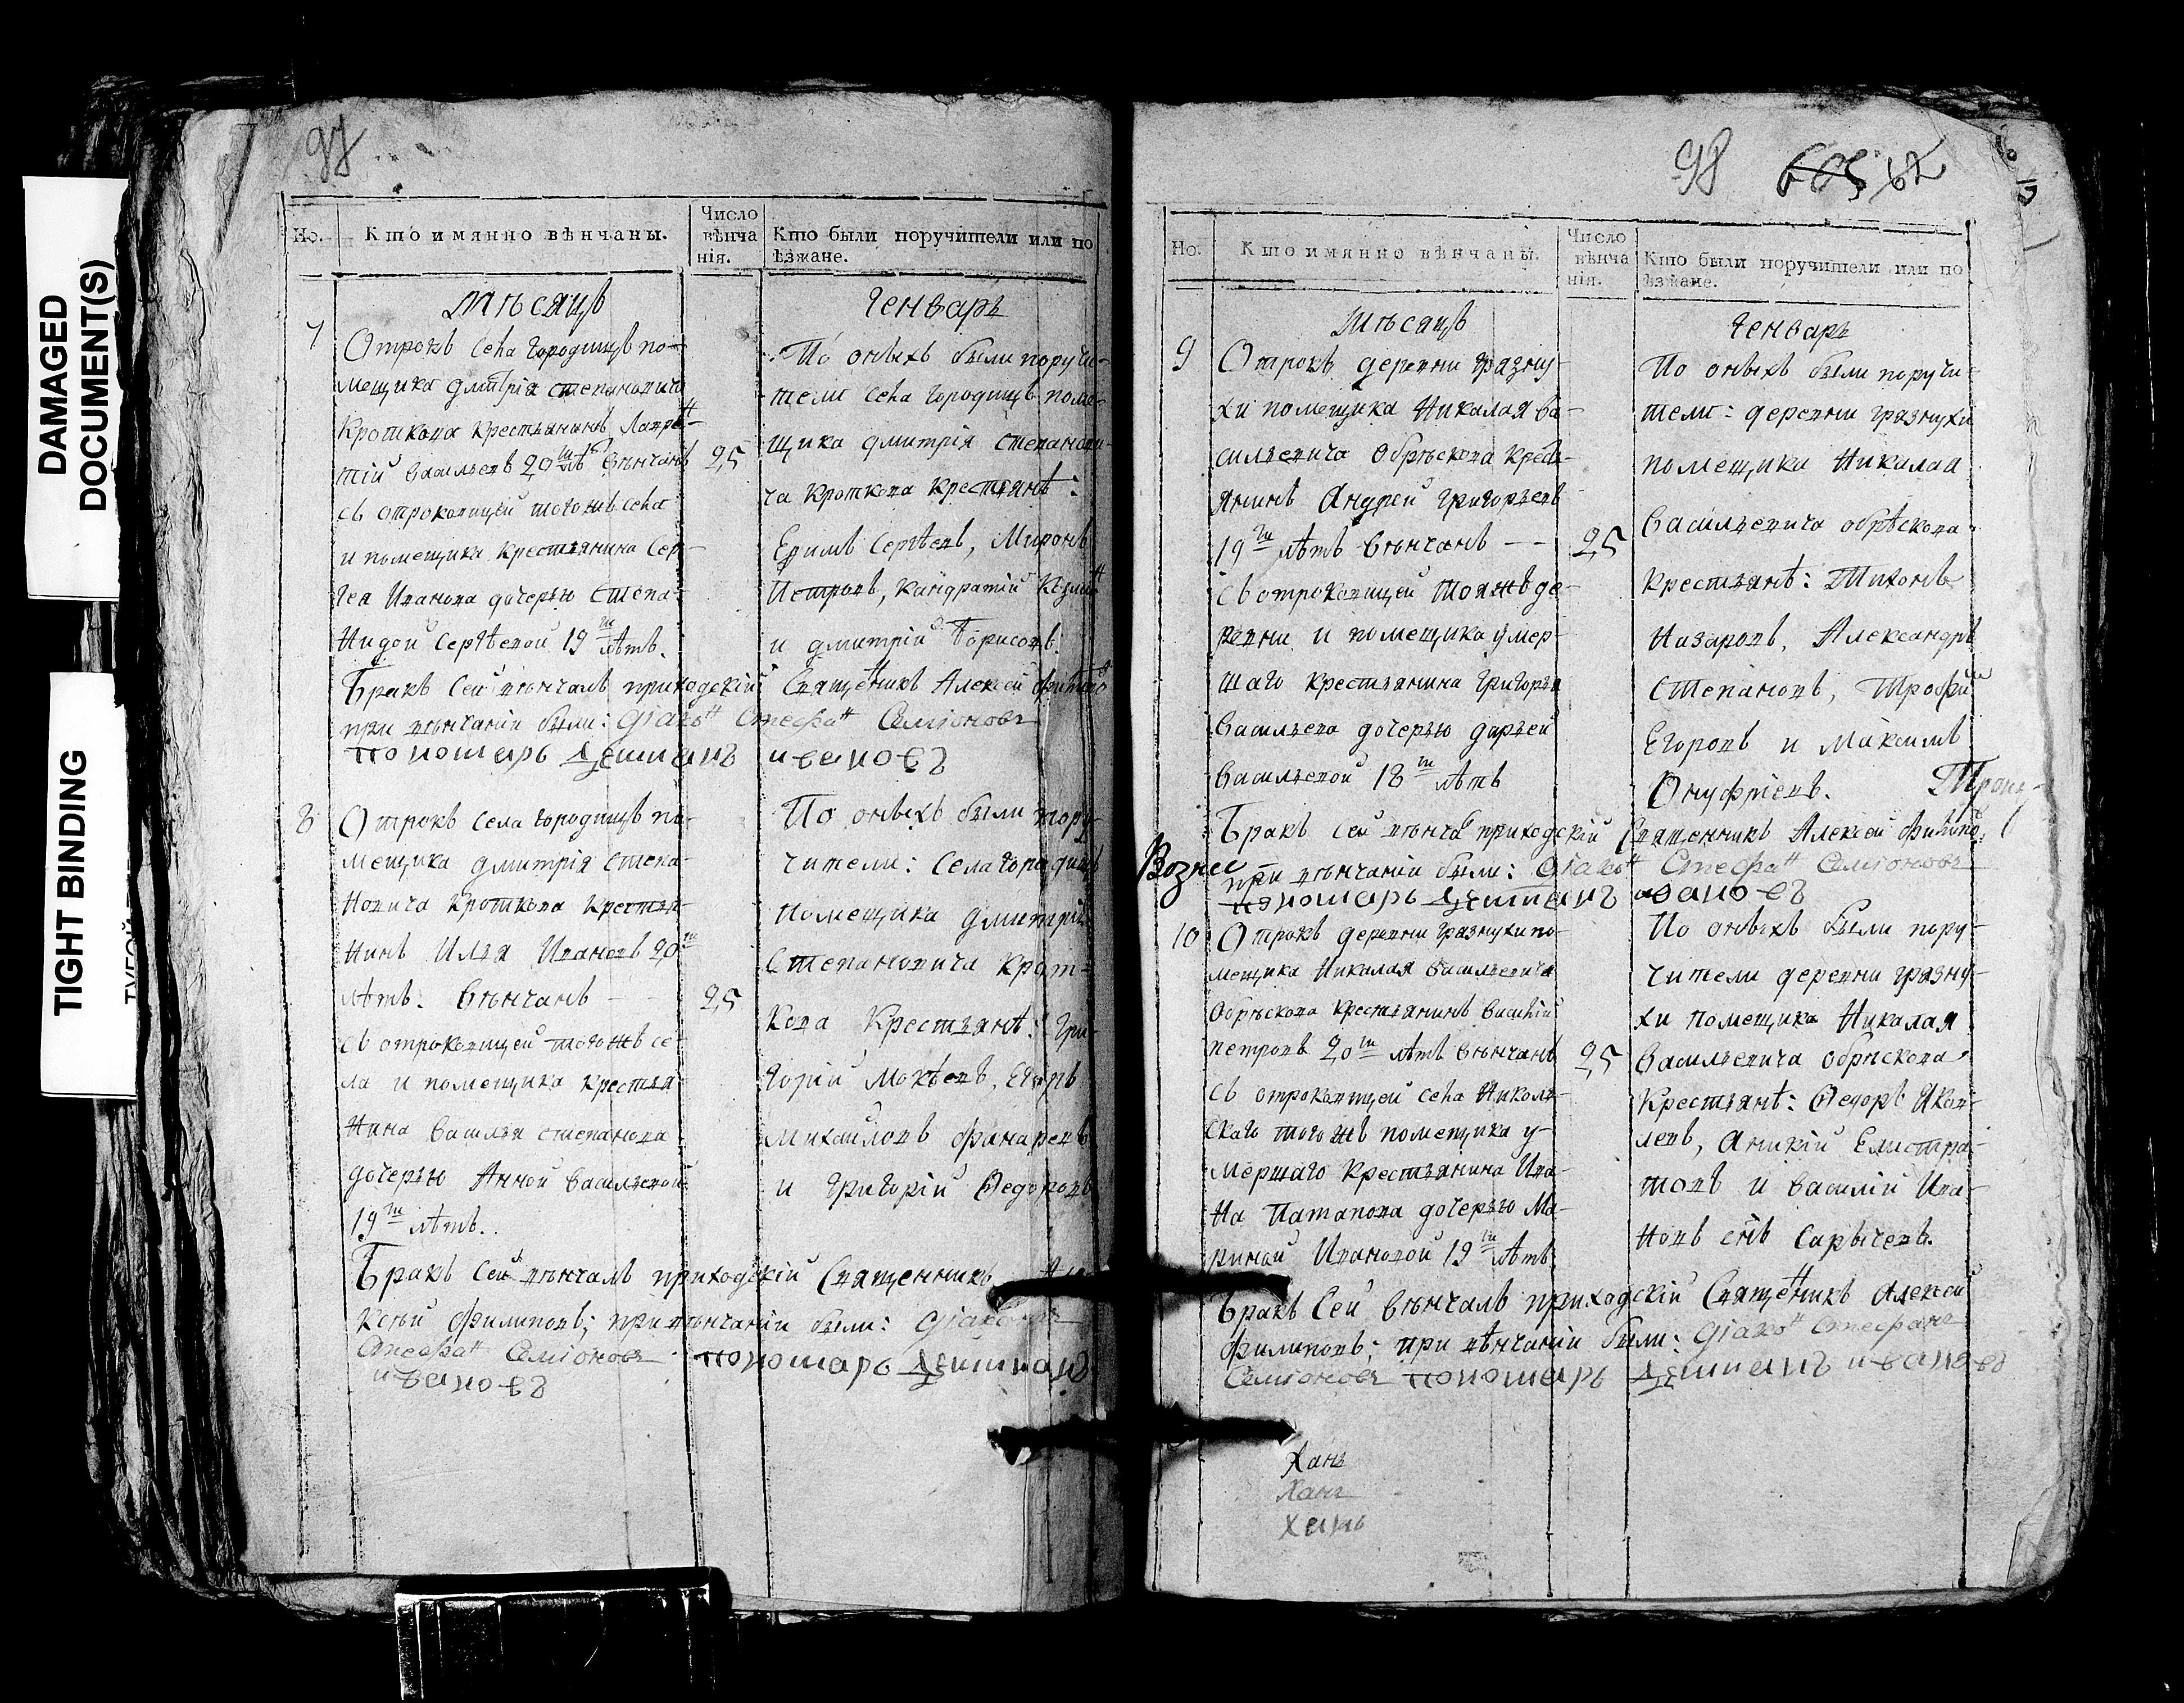 DAMAGED
DOCUMENT(S)
TIGHT BINDING
97
Но.
Кто имянно вѣнчаны.
Число
вѣнча
нія.
Кто были поручители или по
ѣзжане.
Мѣсяцъ
Генварь
7
Отрокъ села городищъ по-
мещика дмитрія степановича
Кроткова крестьянинъ Лавре-
тій васильевъ 20ти лѣтъ вѣнчанъ
съ отроковицей тогожъ села
и помещика крестьянина Сер-
гея Иванова дочерью Степа-
нидой Сергѣевой 19ти лѣтъ.
25
По оныхъ были поручи-
тели села городищъ поме-
щика дмитрія степанови-
ча кроткова крестьянѣ:
Ефимъ Сергѣевъ, Миронъ
Петровъ, кандратій Козмин
и дмитрій Борисовъ.
Бракъ сей вѣнчалъ приходскій Священикъ Алексей Филипо
при вѣнчаніи были: діакон Стефан Семіоновъ
пономарь дементианъ ивановъ
8
Отрокъ села городищъ по-
мещика дмитрія степа-
новича кроткова крестья-
нинъ Илья Ивановъ 20ти
лѣтъ: вѣнчанъ - -
съ отроковицей тогожъ се-
ла и помещика крестья-
нина василья степанова
дочерью Анной васильевой
19ти лѣтъ..
25
По оныхъ были пору-
чители: села городищъ
помещика дмитрія
Степановича крот-
кова крестьянѣ: Гри-
горій Мокѣевъ, Егоръ
михайловъ финаревъ
и Григорій Ѳедоровъ
Бракъ сей вѣнчалъ приходскій Священникъ Але
ксѣй Филиповъ; при вѣнчаніи были: діаконъ
Стефан Семіоновъ пономарь дементианъ
ивановъ
98 605 62
Но.
Кто имянно вѣнчаны.
Число
вѣнча
нія.
Кто были поручители или по
ѣзжане.
Мѣсяцъ
Генварь
9
Отрокъ деревни грязну-
хи помещика Николая ва-
сильевича Обрѣскова кресть-
янинъ Андрей григорьевъ
19ти лѣтъ вѣнчанъ - -
съ отроковицей тояжъ де-
ревни и помещика умер-
шаго крестьянина григорья
васильева дочерью дарьей
васильевой 18ти лѣтъ
25
По оныхъ были поручи-
тели: деревни грязнухи
помещика Николая
васильевича обрѣскова
крестьянѣ: Тихонъ
Назаровъ, Александръ
Степановъ, Трофим
Егоровъ и Максимъ
Онуфріевъ.
Бракъ сей вѣнчал приходскій Священникъ Алексей Филипов
Вознес
при вѣнчаніи были: діакон Стефан Семіоновъ
пономарь дементианъ ивановъ
10
Отрокъ деревни грязнухи по-
мещика Николая васильевича
Обрѣскова крестьянинъ василій
петровъ 20ти лѣтъ вѣнчанъ
съ отроковицей села Николь-
скаго тогожъ помещика у-
мершаго крестьянина Ива-
на Патапова дочерью Ма-
риной Ивановой 19ти лѣтъ
25
По оныхъ были пору-
чители деревни грязну-
хи помещика Николая
васильевича обрѣскова,
крестьянѣ: Ѳедоръ Яков-
левъ, Аникій Елистра-
товъ и василій Ива-
новъ снъ Сарычевъ.
Бракъ сей вѣнчалъ приходскій Священикъ Алексей
Филиповъ; при вѣнчаніи были: діакон Стефанъ
Семіоновъ пономарь дементианъ ивановъ
Ханъ
Ханъ
Ханъ